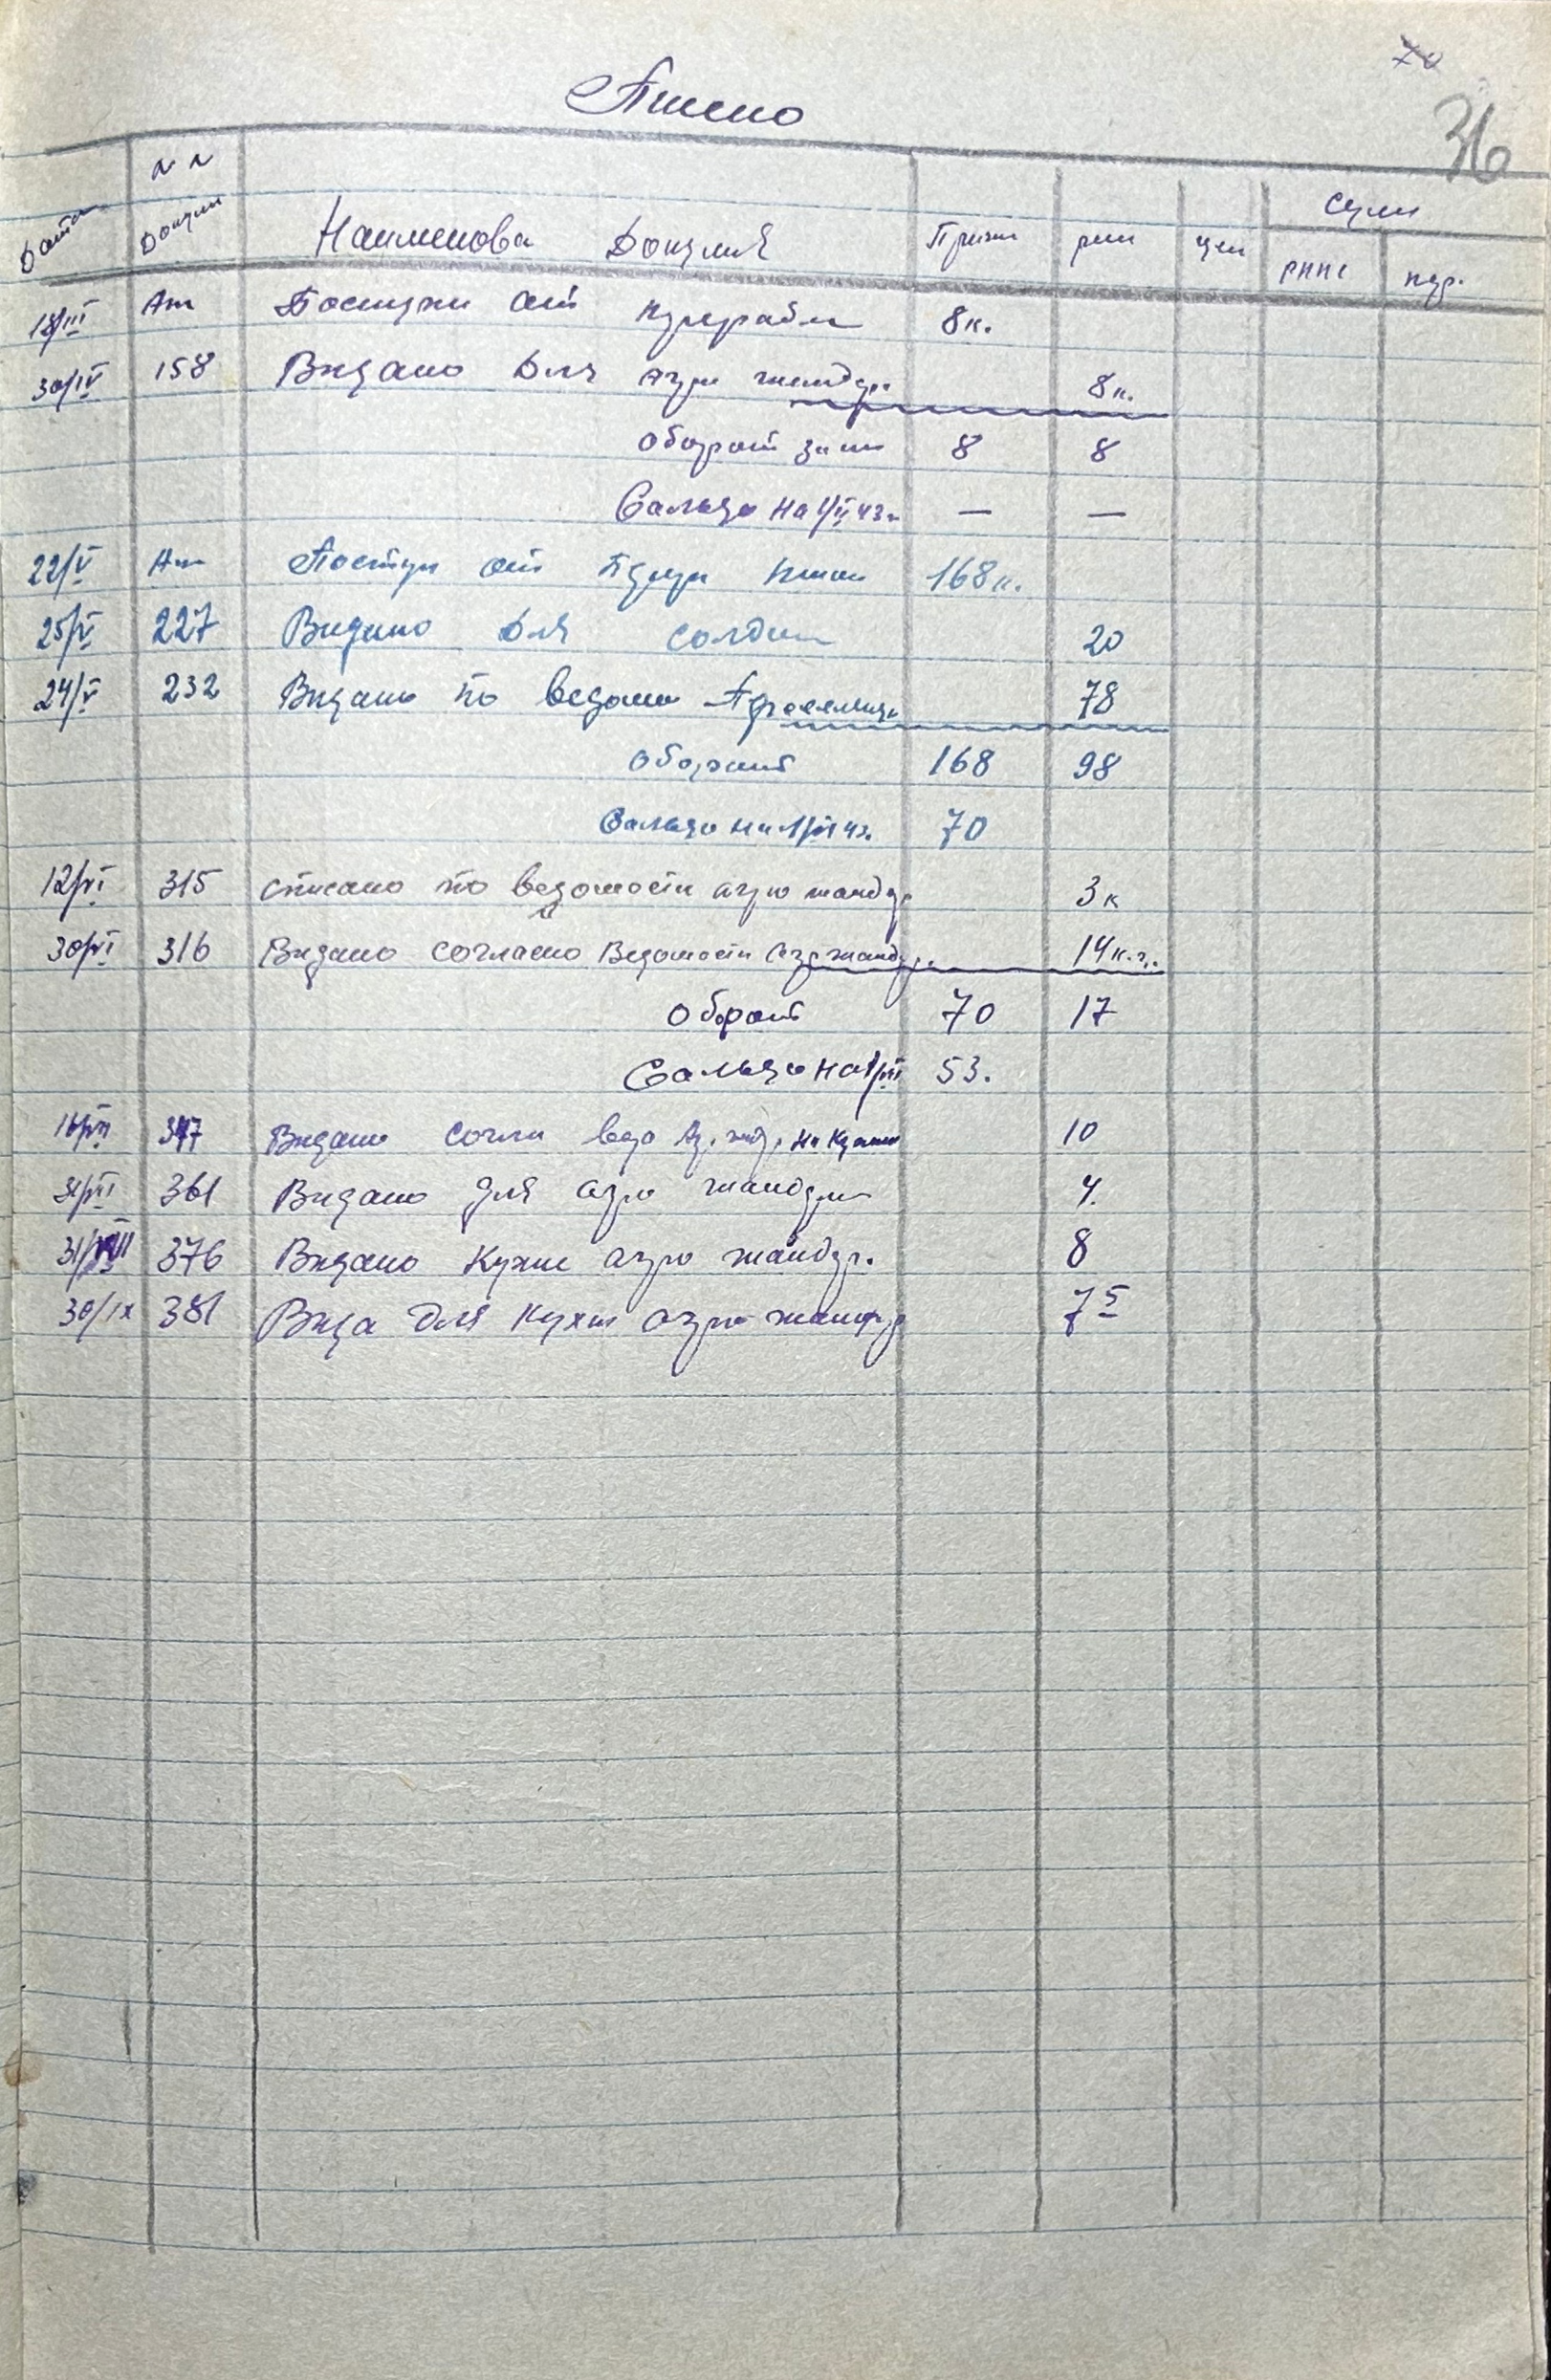 70
36
Пшено
Дата № № Докум Наименова Докумія Прих рас цен Сума
рннс пер.
18/III Ак Поступи от перерабо 8к.
30/IV 158 Видано Для агро жандр. 8к.
Оборот за 8 8
Сальдо на 1/V 43 — —
22/V Ак Поступ от пшон 168к.
25/V 227 Видано Для солдат 20
24/V 232 Видано по ведомо 78
Оборот 168 98
Сальдо на 1/VI 43. 70
12/VI 315 списано по ведомости агро жандр 3к
30/VI 316 Видано согласно Ведомости Агр жандр. 14к.г.
Оборот 70 17
Сальдо на 1/VII 53.
16/VII 347 Видано согла ведо Аг. жад. на Кухню
10
31/VII 361 Видано для агро жандрм 4.
31/VIII 376 Видано Кухне агро жандр. 8
30/IX 381 Вида для Кухни агро-жандр 7 5